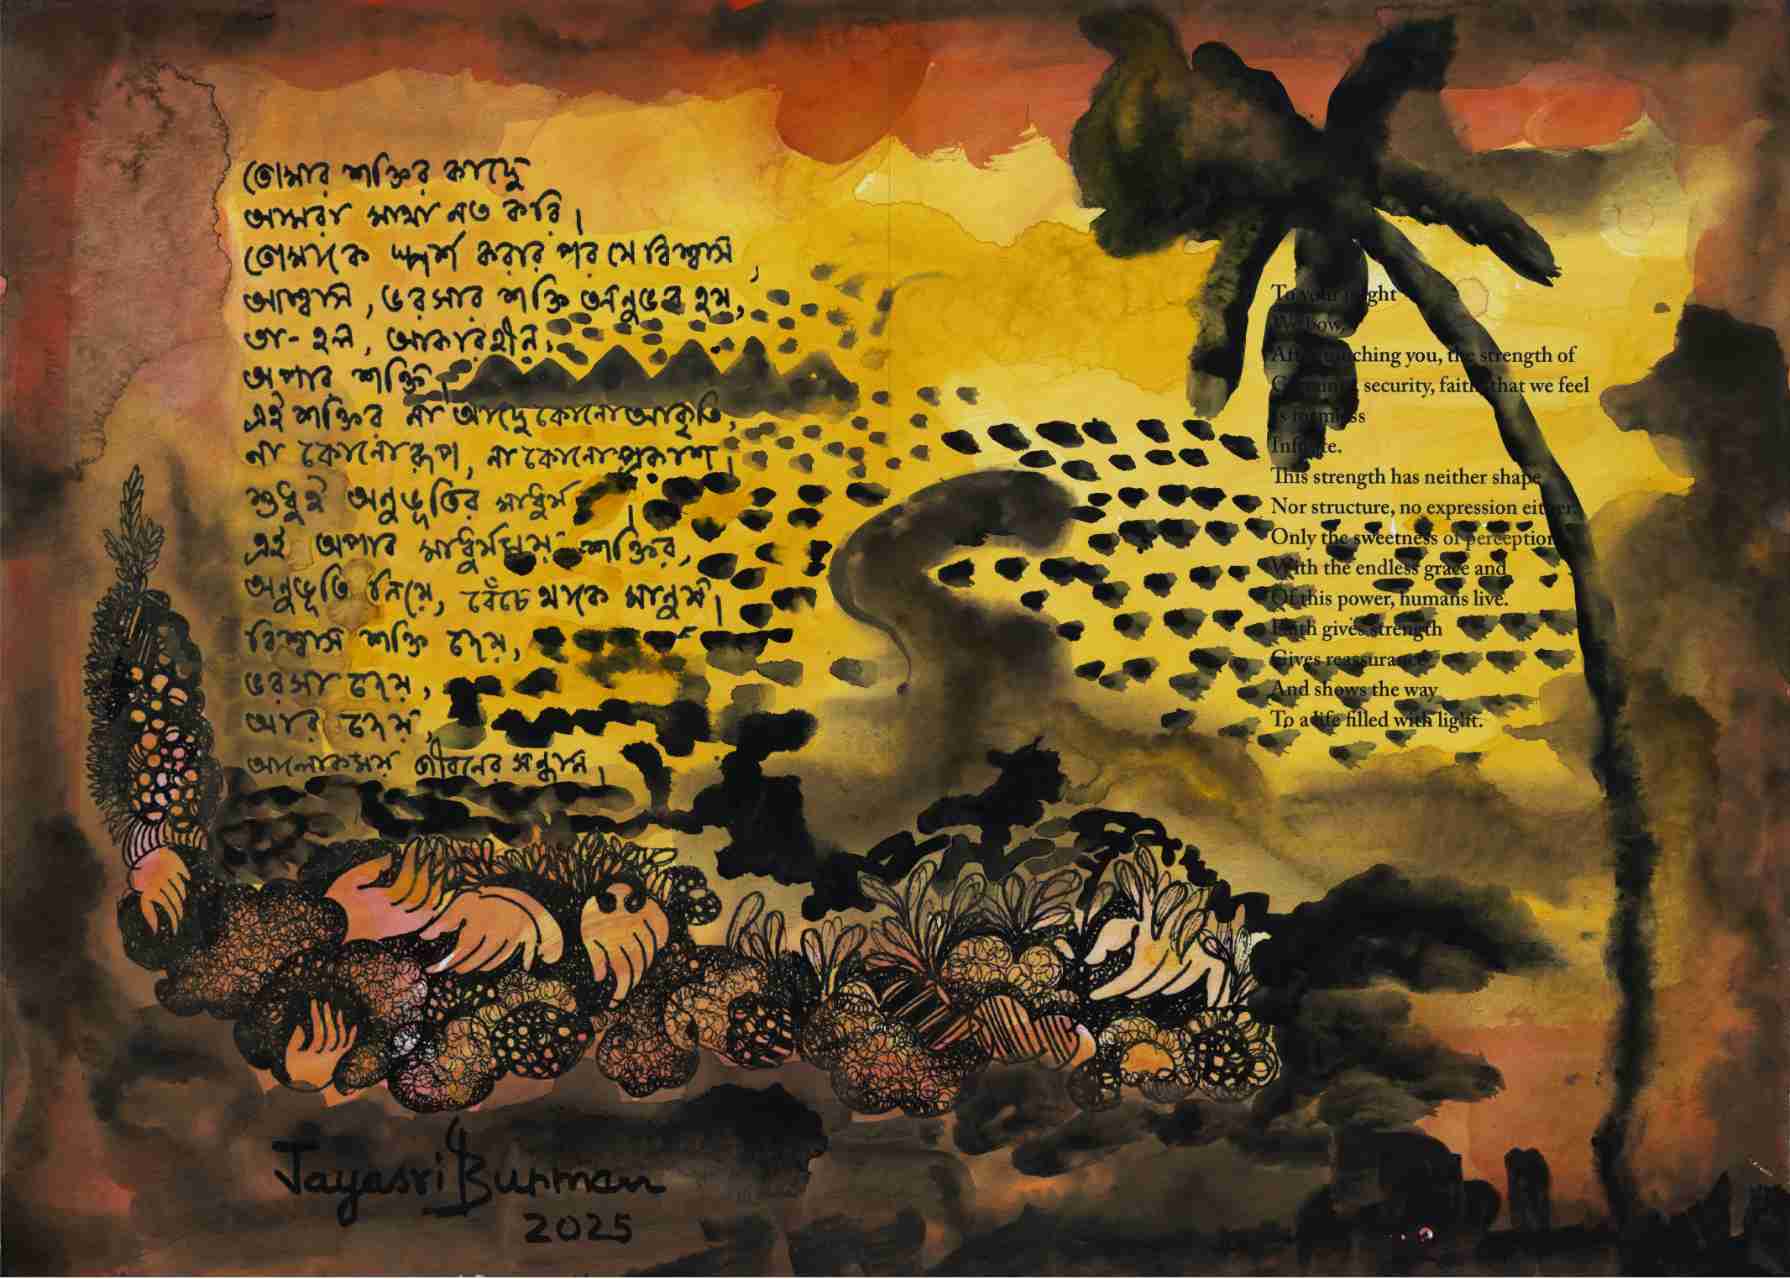 তোমার শক্তির কাছে
আমরা মাথা নত করি।
তোমাকে স্পর্শ করার পর যে বিশ্বাস,
আশ্বাস, ভরসার শক্তি অনুভব হয়,
তা-হল, আকারহীন,
অপার শক্তি।
এই শক্তির না আছে কোনো আকৃতি,
না কোনো রূপ, না কোনো প্রকাশ।
শুধুই অনুভূতির মাধুর্য।
এই অপার মাধুর্যময় শক্তির,
অনুভূতি নিয়ে, বেঁচে থাকে মানুষ।
বিশ্বাস শক্তি দেয়,
ভরসা দেয়,
আর দেয়,
আলোকময় জীবনের সন্ধান।
To your might
We bow,
After touching you, the strength of
security, faith that we feel
Is formless
Infinite.
This strength has neither shape
Nor structure, no expression either.
Only the sweetness of perception
With the endless grace and
Of this power, humans live.
Faith gives strength
Gives reassurance
And shows the way
To a life filled with light.
Jayasri Burman
2025